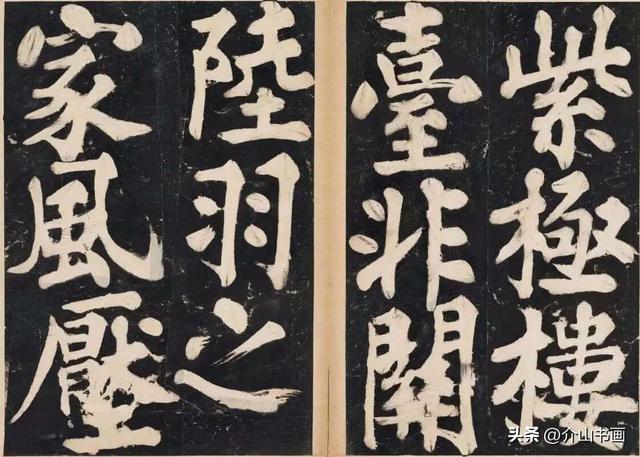 紫極樓
臺非關
陸羽之
家風壓
头条 @介山书画